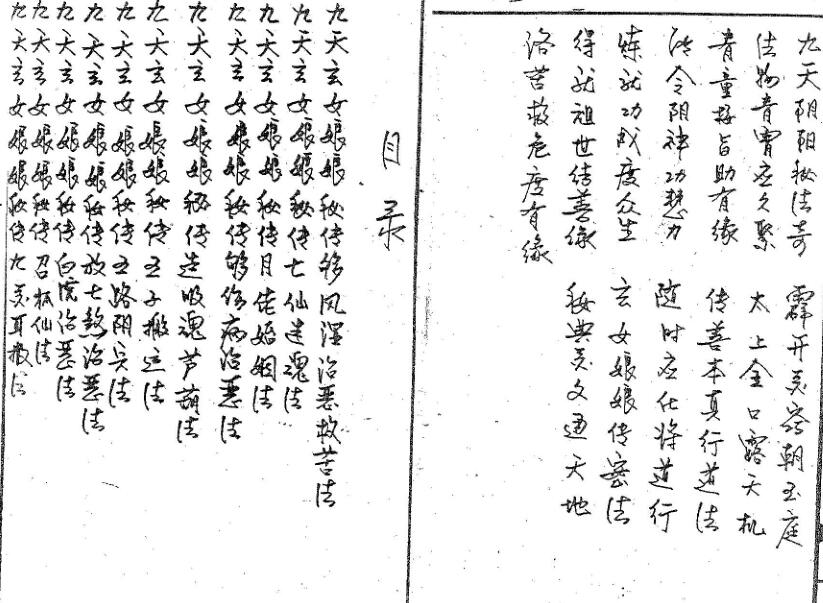 九天阴阳秘法奇 霹开灵窍朝玉庭
法物青霄应久聚 太上金口露天机
青童接旨助有缘 传善本真行道法
敕令阴神功慧力 随时应化将道行
炼就功成度众生 玄女娘娘传密法
得就祖世传善缘 秘典灵文通天地
洛苦救危度有缘
目录
九天玄女娘娘秘传移风湿治恶救苦法
九天玄女娘娘秘传七仙迷魂法
九天玄女娘娘秘传月佬婚姻法
九天玄女娘娘秘传够伤病治恶法
九天玄女娘娘秘传造吸魂芦葫法
九天玄女娘娘秘传五子搬运法
九天玄女娘娘秘传五路阴兵法
九天玄女娘娘秘传放七煞治恶法
九天玄女娘娘秘传白虎治恶法
九天玄女娘娘秘传召狐仙法
九天玄女娘娘秘传九灵耳报法